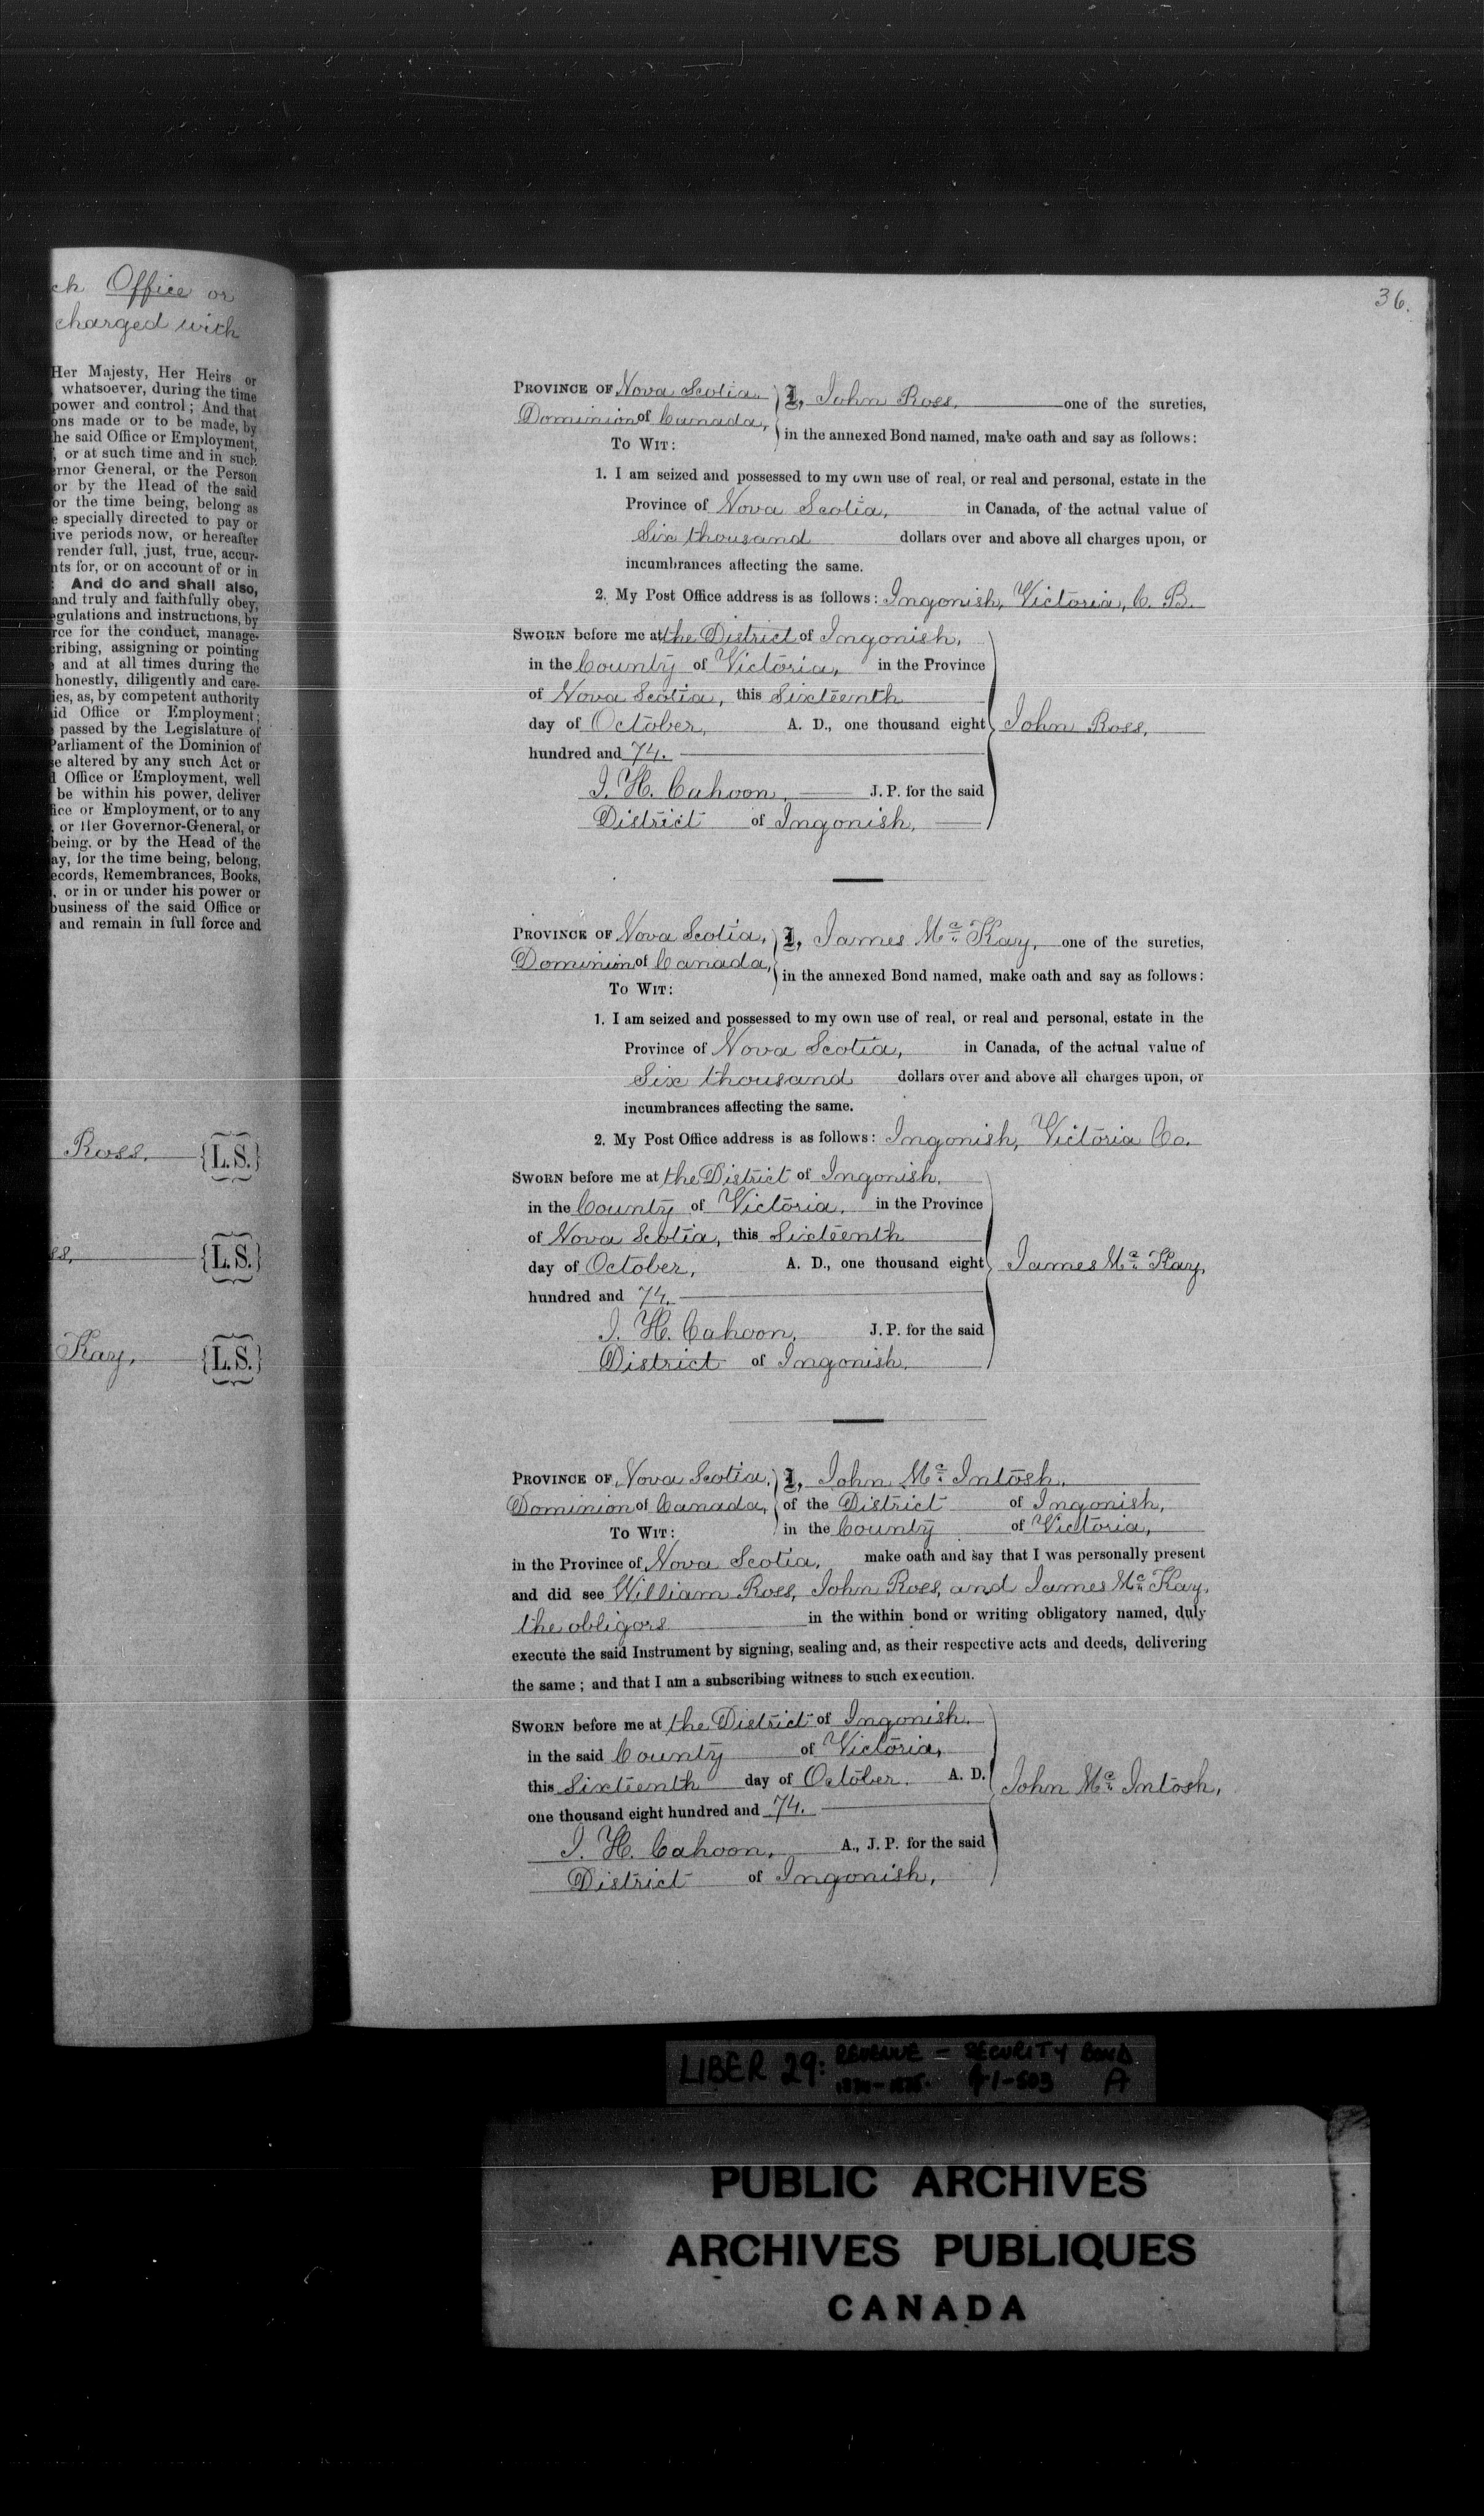 ch Office or
charged with
Her Majesty, Her Heirs or
whatsoever, during the time
power and control; And that
ons made or to be made, by
he said Office or Employment,
, or at such time and in such
ernor General, or the Person
or by the Head of the said
or the time being, belong as
e specially directed to pay or
ive periods now, or hereafter
render full, just, true, accur-
nts for, or on account of or in
: And do and shall also,
and truly and faithfully obey,
egulations and instructions, by
rce for the conduct, manage-
cribing, assigning or pointing
e and at all times during the
honestly, diligently and care-
ies, as, by competent authority
aid Office or Employment;
e passed by the Legislature of
Parliament of the Dominion of
se altered by any such Act or
d Office or Employment, well
be within his power, deliver
fice or Employment, or to any
, or Her Governor-General, or
being, or by the Head of the
ay, for the time being, belong,
ecords, Remembrances, Books,
, or in or under his power or
business of the said Office or
and remain in full force and
Ross, {L.S.}
ss, {L.S.}
Kay, {L.S.}
36.
PROVINCE OF Nova Scotia } I, John Ross, one of the sureties,
Dominion of Canada, in the annexed Bond named, make oath and say as follows:
TO WIT:
1. I am seized and possessed to my own use of real, or real and personal, estate in the
Province of Nova Scotia, in Canada, of the actual value of
Six thousand dollars over and above all charges upon, or
incumbrances affecting the same.
2. My Post Office address is as follows: Ingonish, Victoria, C. B.
SWORN before me at the District of Ingonish,
in the County of Victoria, in the Province
of Nova Scotia, this Sixteenth
day of October, A. D., one thousand eight } John Ross,
hundred and 74.
J. H. Cahoon, J. P. for the said
District of Ingonish,
PROVINCE OF Nova Scotia, } I, James Mc. Kay, one of the sureties,
Dominion of Canada, in the annexed Bond named, make oath and say as follows:
TO WIT:
1. I am seized and possessed to my own use of real, or real and personal, estate in the
Province of Nova Scotia, in Canada, of the actual value of
Six thousand dollars over and above all charges upon, or
incumbrances affecting the same.
2. My Post Office address is as follows: Ingonish, Victoria Co.
SWORN before me at the District of Ingonish,
in the County of Victoria, in the Province
of Nova Scotia, this Sixteenth
day of October, A. D., one thousand eight } James Mc. Kay,
hundred and 74.
J. H. Cahoon, J. P. for the said
District of Ingonish,
PROVINCE OF Nova Scotia, } I, John Mc. Intosh,
Dominion of Canada, of the District of Ingonish,
TO WIT: in the County of Victoria,
in the Province of Nova Scotia, make oath and say that I was personally present
and did see William Ross, John Ross, and James Mc. Kay,
the obligors in the within bond or writing obligatory named, duly
execute the said Instrument by signing, sealing and, as their respective acts and deeds, delivering
the same; and that I am a subscribing witness to such execution.
SWORN before me at the District of Ingonish,
in the said County of Victoria,
this Sixteenth day of October. A. D. } John Mc. Intosh,
one thousand eight hundred and 74.
J. H. Cahoon, A., J. P. for the said
District of Ingonish,
LIBER 29: REVENUE - SECURITY BOND
A
PUBLIC ARCHIVES
ARCHIVES PUBLIQUES
CANADA